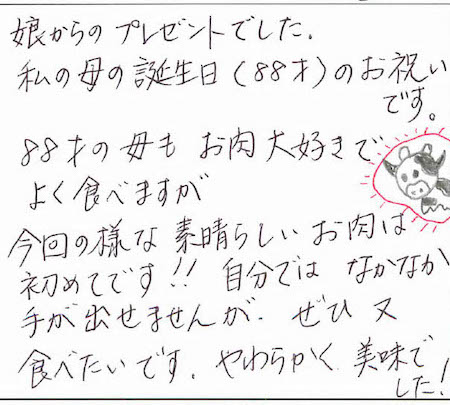 娘からのプレゼントでした.
私の母の誕生日(88才)のお祝い
です。
88才の母も お肉大好きで
よく食べますが
今回の様な 素晴らしい お肉は
初めてです!! 自分では なかなか
手が出せませんが. ぜひ 又
食べたいです. やわらかく 美味で
した!